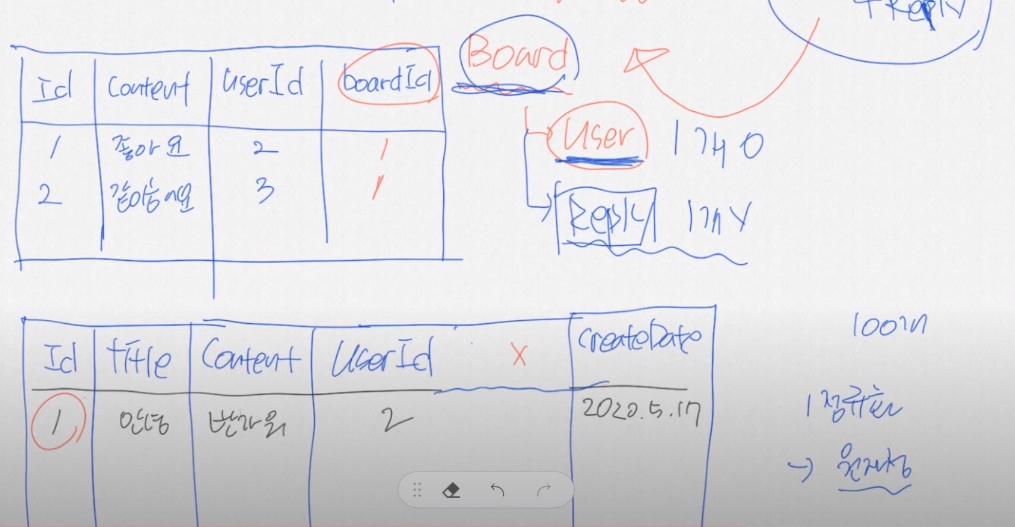 +Reply
Board
Id Content UserId boardId
1 좋아요 2 1
2 3 1
User 1개 O
Reply 1개 Y
Id Title Content UserId X CreateDate
1 안녕 반가워 2 2020.5.17
100개
1정규화
→ 원자성